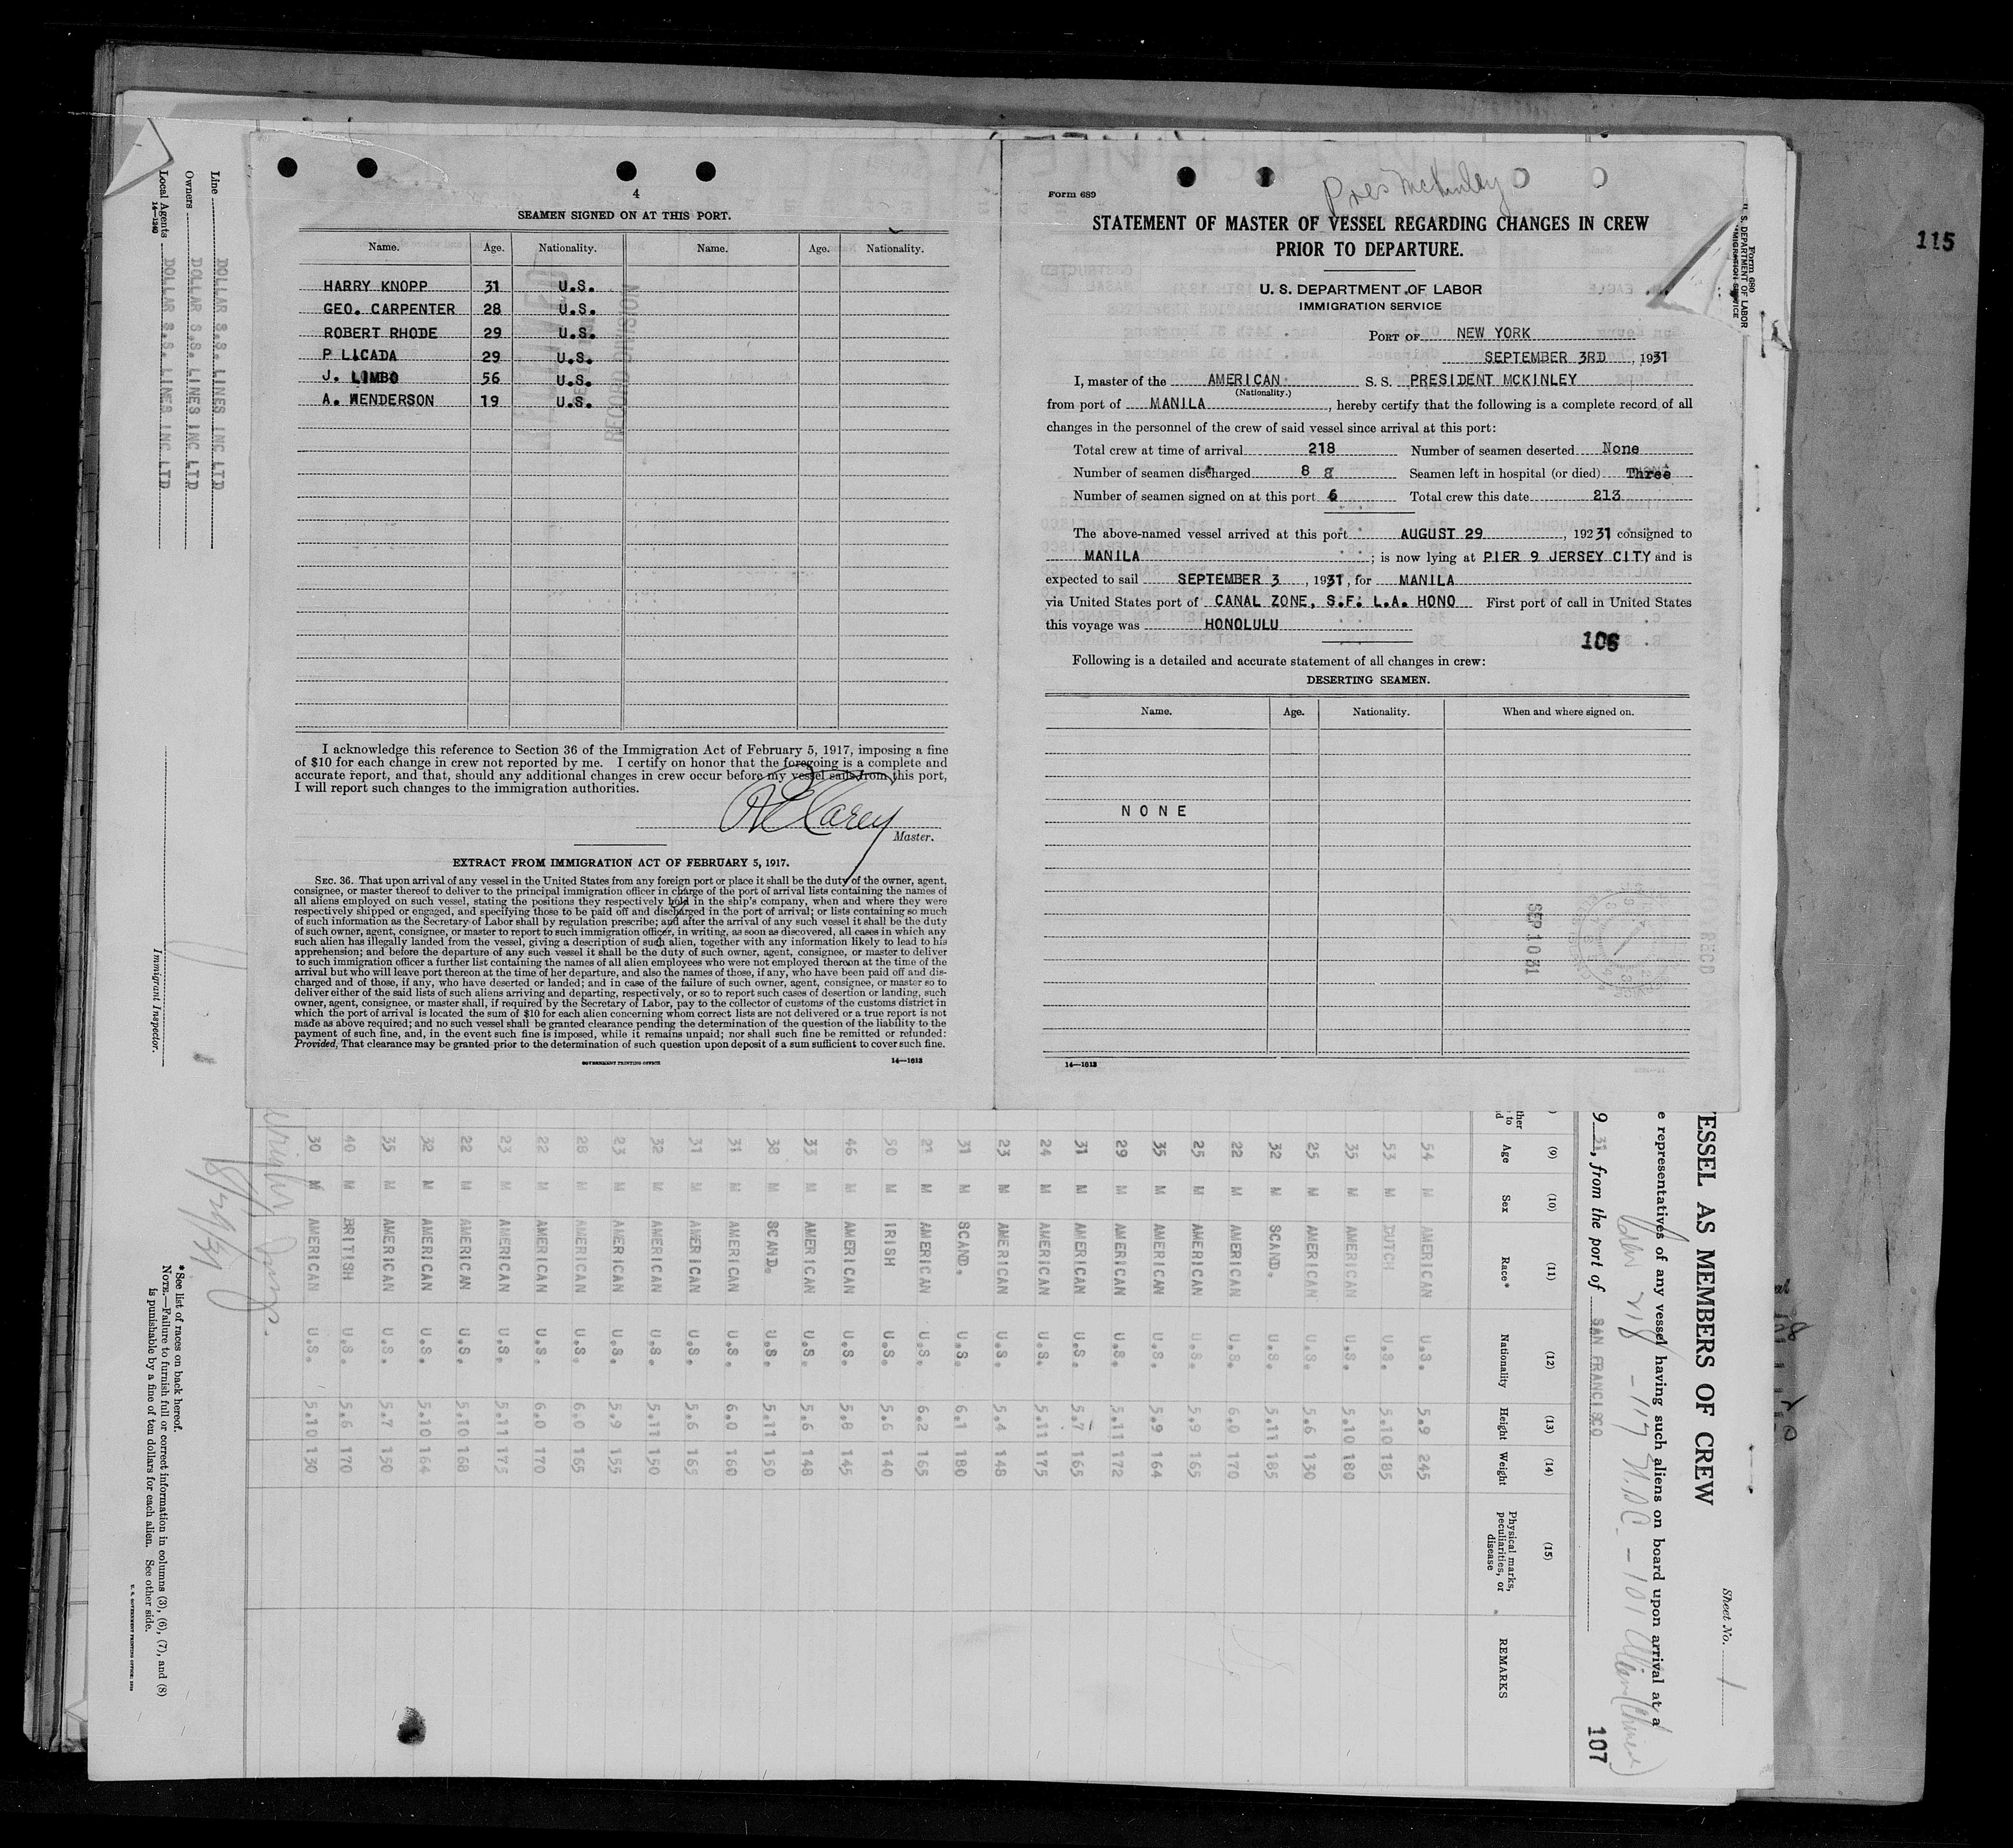 115
4
SEAMEN SIGNED ON AT THIS PORT.
Name. Age. Nationality. Name. Age. Nationality.
HARRY KNOPP 31 U.S.
GEO. CARPENTER 28 U.S.
ROBERT RHODE 29 U.S.
P LICADA 29 U.S.
J. LIMBO 56 U.S.
A. WENDERSON 19 U.S.
I acknowledge this reference to Section 36 of the Immigration Act of February 5, 1917, imposing a fine
of $10 for each change in crew not reported by me. I certify on honor that the foregoing is a complete and
accurate report, and that, should any additional changes in crew occur before my vessel sails from this port,
I will report such changes to the immigration authorities.
Carey
Master.
EXTRACT FROM IMMIGRATION ACT OF FEBRUARY 5, 1917.
SEC. 36. That upon arrival of any vessel in the United States from any foreign port or place it shall be the duty of the owner, agent,
consignee, or master thereof to deliver to the principal immigration officer in charge of the port of arrival lists containing the names of
all aliens employed on such vessel, stating the positions they respectively hold in the ship's company, when and where they were
respectively shipped or engaged, and specifying those to be paid off and discharged in the port of arrival; or lists containing so much
of such information as the Secretary of Labor shall by regulation prescribe; and after the arrival of any such vessel it shall be the duty
of such owner, agent, consignee, or master to report to such immigration officer, in writing, as soon as discovered, all cases in which any
such alien has illegally landed from the vessel, giving a description of such alien, together with any information likely to lead to his
apprehension; and before the departure of any such vessel it shall be the duty of such owner, agent, consignee, or master to deliver
to such immigration officer a further list containing the names of all alien employees who were not employed thereon at the time of the
arrival but who will leave port thereon at the time of her departure, and also the names of those, if any, who have been paid off and dis-
charged and of those, if any, who have deserted or landed; and in case of the failure of such owner, agent, consignee, or master so to
deliver either of the said lists of such aliens arriving and departing, respectively, or so to report such cases of desertion or landing, such
owner, agent, consignee, or master shall, if required by the Secretary of Labor, pay to the collector of customs of the customs district in
which the port of arrival is located the sum of $10 for each alien concerning whom correct lists are not delivered or a true report is not
made as above required; and no such vessel shall be granted clearance pending the determination of the question of the liability to the
payment of such fine, and, in the event such fine is imposed, while it remains unpaid; nor shall such fine be remitted or refunded:
Provided, That clearance may be granted prior to the determination of such question upon deposit of a sum sufficient to cover such fine.
GOVERNMENT PRINTING OFFICE 14—1613
Pres McKinley
Form 689
STATEMENT OF MASTER OF VESSEL REGARDING CHANGES IN CREW
PRIOR TO DEPARTURE.
U. S. DEPARTMENT OF LABOR
IMMIGRATION SERVICE
PORT OF NEW YORK
SEPTEMBER 3RD, 1931
I, master of the AMERICAN S. S. PRESIDENT MCKINLEY
(Nationality.)
from port of MANILA, hereby certify that the following is a complete record of all
changes in the personnel of the crew of said vessel since arrival at this port:
Total crew at time of arrival 218 Number of seamen deserted None
Number of seamen discharged 8 8 Seamen left in hospital (or died) Three
Number of seamen signed on at this port 6 Total crew this date 213
The above-named vessel arrived at this port AUGUST 29, 192 31 consigned to
MANILA; is now lying at PIER 9 JERSEY CITY and is
expected to sail SEPTEMBER 3, 1931, for MANILA
via United States port of CANAL ZONE, S.F. L.A. HONO First port of call in United States
this voyage was HONOLULU
106
Following is a detailed and accurate statement of all changes in crew:
DESERTING SEAMEN.
Name. Age. Nationality. When and where signed on.
NONE
SEP 10 31
14—1613
Form 680
U. S. DEPARTMENT OF LABOR
IMMIGRATION SERVICE
Line DOLLAR S.S. LINES INC LTD
Owners DOLLAR S.S. LINES INC LTD
Local Agents DOLLAR S.S. LINES INC LTD
14—1240
Immigrant Inspector.
ESSEL AS MEMBERS OF CREW
Sheet No. 1
e representatives of any vessel having such aliens on board upon arrival at a
9 31, from the port of SAN FRANCISCO
218 - 117
107
(9) (10) (11) (12) (13) (14) (15)
Age Sex Race* Nationality Height Weight Physical marks, peculiarities, or disease REMARKS
54 M AMERICAN U.S. 5.9 245
53 M DUTCH U.S. 5.10 185
35 M AMERICAN U.S. 5.10 180
25 M AMERICAN U.S. 5.6 130
32 M SCAND. U.S. 5.11 185
22 M AMERICAN U.S. 6.0 170
25 M AMERICAN U.S. 5.9 165
35 M AMERICAN U.S. 5.9 164
29 M AMERICAN U.S. 5.11 172
31 M AMERICAN U.S. 5.7 165
24 M AMERICAN U.S. 5.11 175
23 M AMERICAN U.S. 5.4 148
31 M SCAND. U.S. 6.1 180
27 M AMERICAN U.S. 6.2 165
50 M IRISH U.S. 5.6 140
46 M AMERICAN U.S. 5.8 145
33 M AMERICAN U.S. 5.6 148
38 M SCAND. U.S. 5.11 150
31 M AMERICAN U.S. 6.0 160
31 M AMERICAN U.S. 5.6 165
32 M AMERICAN U.S. 5.11 150
23 M AMERICAN U.S. 5.9 155
28 M AMERICAN U.S. 6.0 165
22 M AMERICAN U.S. 6.0 170
23 M AMERICAN U.S. 5.11 175
22 M AMERICAN U.S. 5.10 168
32 M AMERICAN U.S. 5.10 164
35 M AMERICAN U.S. 5.7 150
40 M BRITISH U.S. 5.6 170
30 M AMERICAN U.S. 5.10 130
8/29/31
*See list of races on back hereof.
NOTE.—Failure to furnish full or correct information in columns (3), (6), (7), and (8)
is punishable by a fine of ten dollars for each alien. See other side.